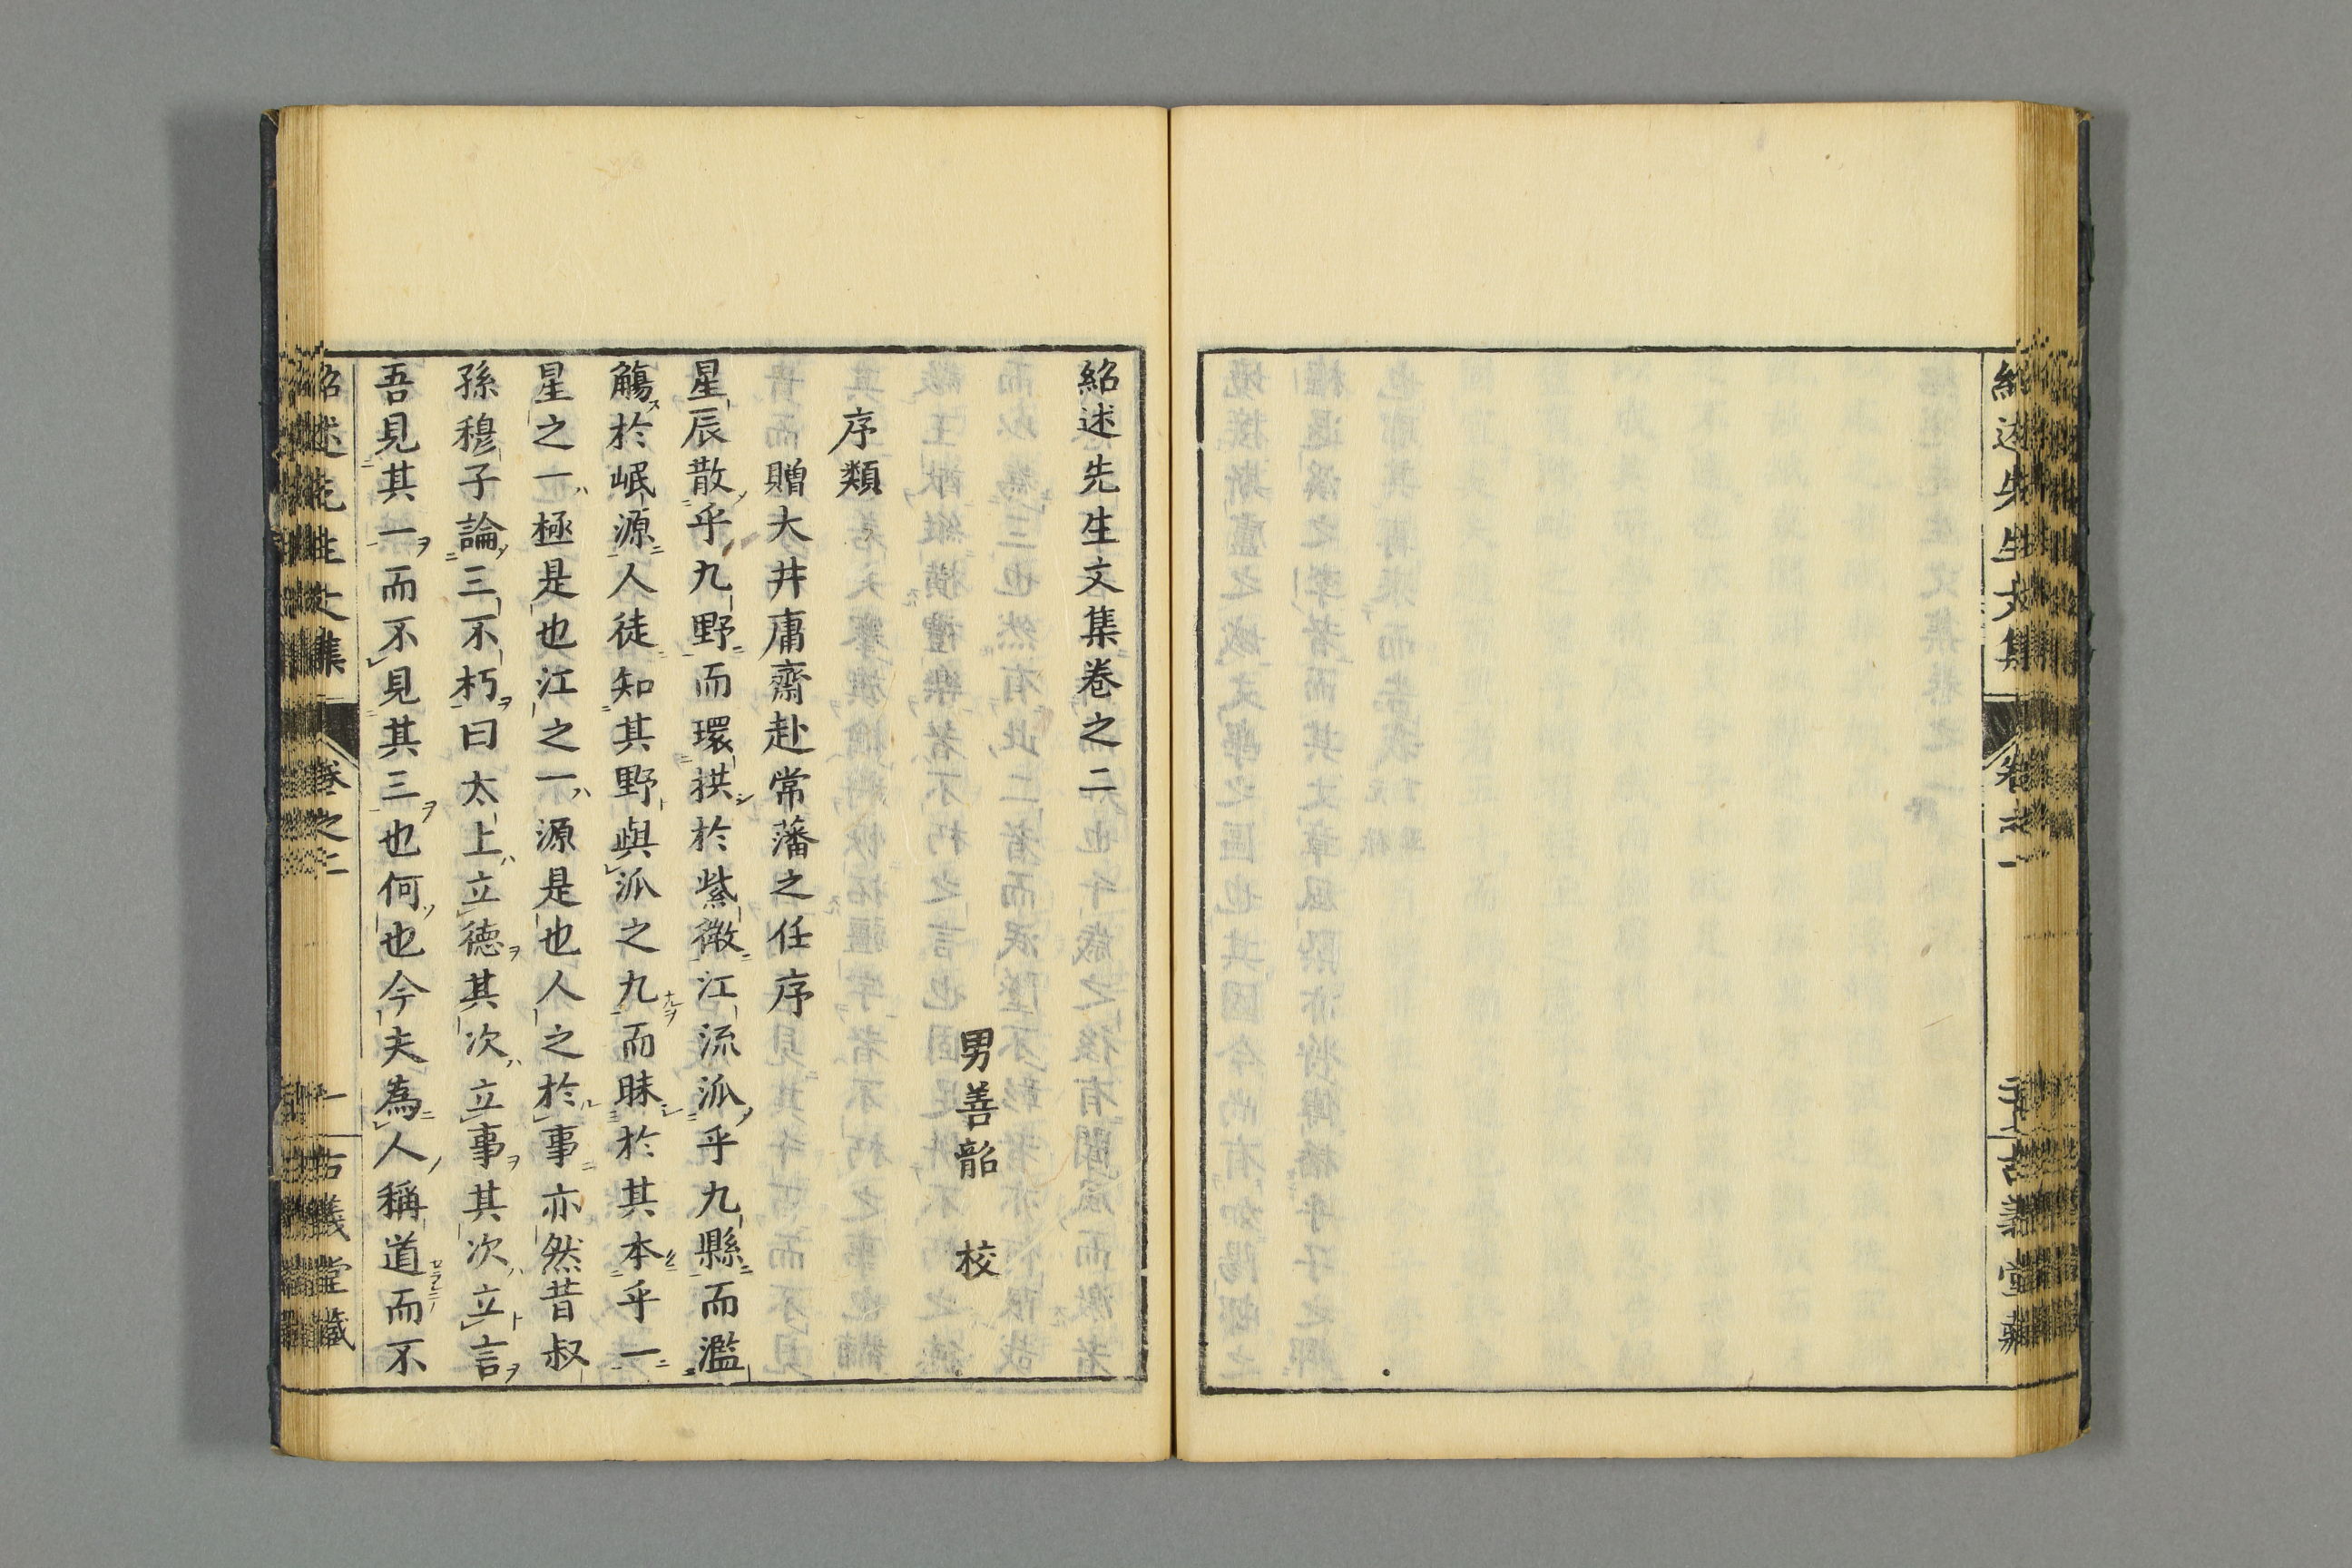 紹述先生文集 卷之一 古義堂藏
紹述先生文集卷之二
男善韶 校
序類
贈大井庸齋赴常藩之任序
星辰散乎九野而環拱於紫微江流泒乎九縣而濫
觴於岷源人徒知其野與泒之九而昧於其本乎一
星之一極是也江之一源是也人之於事亦然昔叔
孫穆子論三不朽曰太上立德其次立事其次立言
吾見其一而不見其三也何也今夫為人稱道而不
紹述先生文集 卷之二 一 古義堂藏